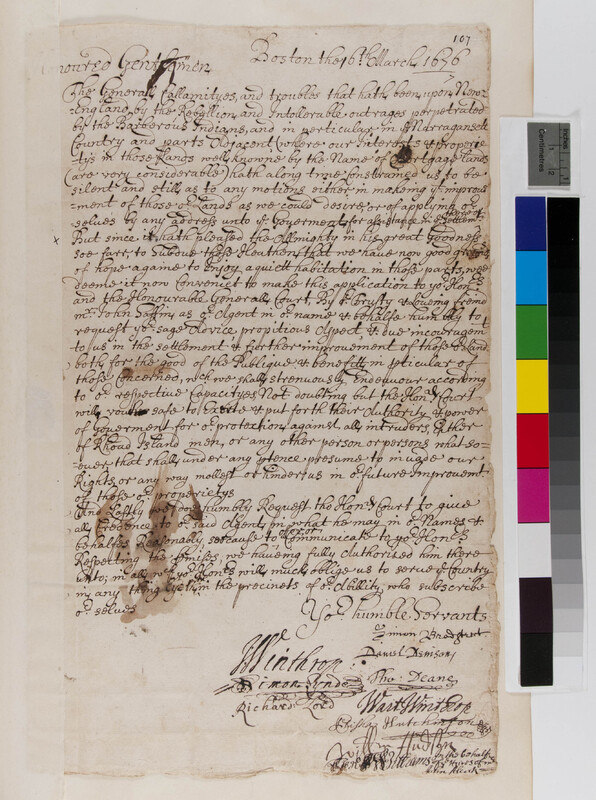 107
Boston the 16th March 1676/7
oured Gentlemen
The Generall Callamityes, and troubles that hath been upon New-
-England by the Rebellion and Intollerable outrages perpetrated
by the Barberous Indians, and in perticular in ye Narragansett
Country and parts Adjacent (where our Interests & properie-
tys in those Lands well knowne by the Name of Mortgage lands
are very considerable) hath along time constrained us to be
silent and still as to any motions either in making ye improve-
-ment of those or Lands as we could desire, or of applying or-
selves by any address unto ye Goverment for assistance in
But since it hath pleased the Allmighty in his great Goodness
soe farr to subdue those Heathen that we have now good grounds
of hope againe to enjoy a quiett habitation in those parts, wee
deeme it now Convenient to make this application to yor Honrs
and the Honourable Generall Court, By or trusty & loveing freind
mr John Saffin as or Agent in or name & behalfe humbly to
request yor sage Advice propitious Aspect & due incouragemt
to us in the settlement & further improvement of those or Lands
both for the good of the Publique & benefitt in pticular of
those Concerned, wch we shall strenuously Endeavour according
to or respective Capacityes Not doubting but the Honrd Court
will vouchsafe to & put forth their Authority & power
of Goverment for or protection against all intruders, Either
of Rhoad Island men, or any other person or persons what soe-
-ever that shall under any ptence presume to invade our
Rights or any way mollest or hinder us in or future Improvemt
of those or proprietys
And Lastly we doe humbly Request the Honrd Court to give
all Credence to or said Agent in what he may in or Names &
behalfes Reasonably see cause to offer or Communicate to yor Honrs
Respecting the p'mises, we haveing fully Authorised him there
unto; in all wch yor Honrs will much oblige us to serve ye Country
in any thing lyeth in the precincts of or Abillity, who subscribe
or selves
Yor humble Servants
Simon Bradstreet
Daniel Denison
Winthrop
Simon Lynde
Tho: Deane
Richard Lord
Wait Winthrop
Elisha Hutchinson
Wm Hudson
in the behalfe
Centimetres
Inches